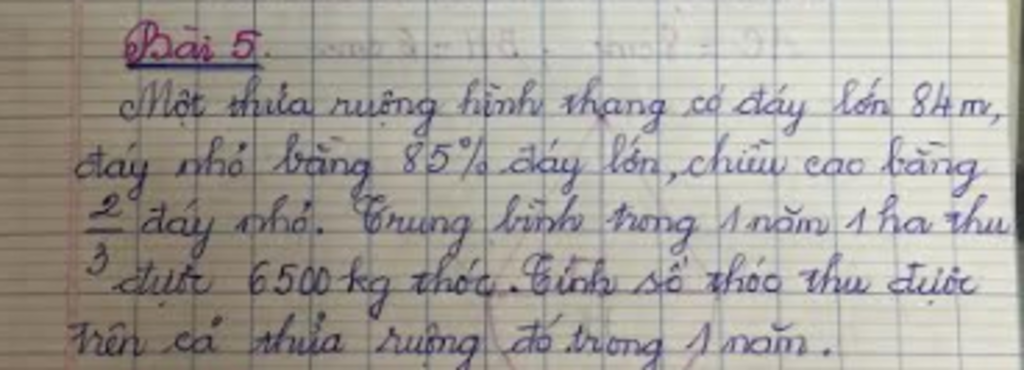 Bài 5.
Một thửa ruộng hình thang có đáy lớn 84m,
đáy nhỏ bằng 85% đáy lớn, chiều cao bằng
2/3 đáy nhỏ. Trung bình trong 1 năm 1 ha thu
được 6500 kg thóc. Tính số thóc thu được
trên cả thửa ruộng đó trong 1 năm.